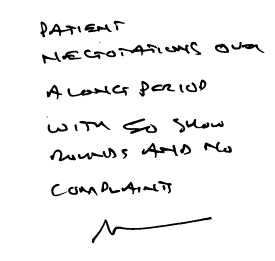 PATIENT
NEGOTATIONS OVER
A LONG PERIOD
WITH SO SHOW
ROUNDS AND NO
COMPLAINTS